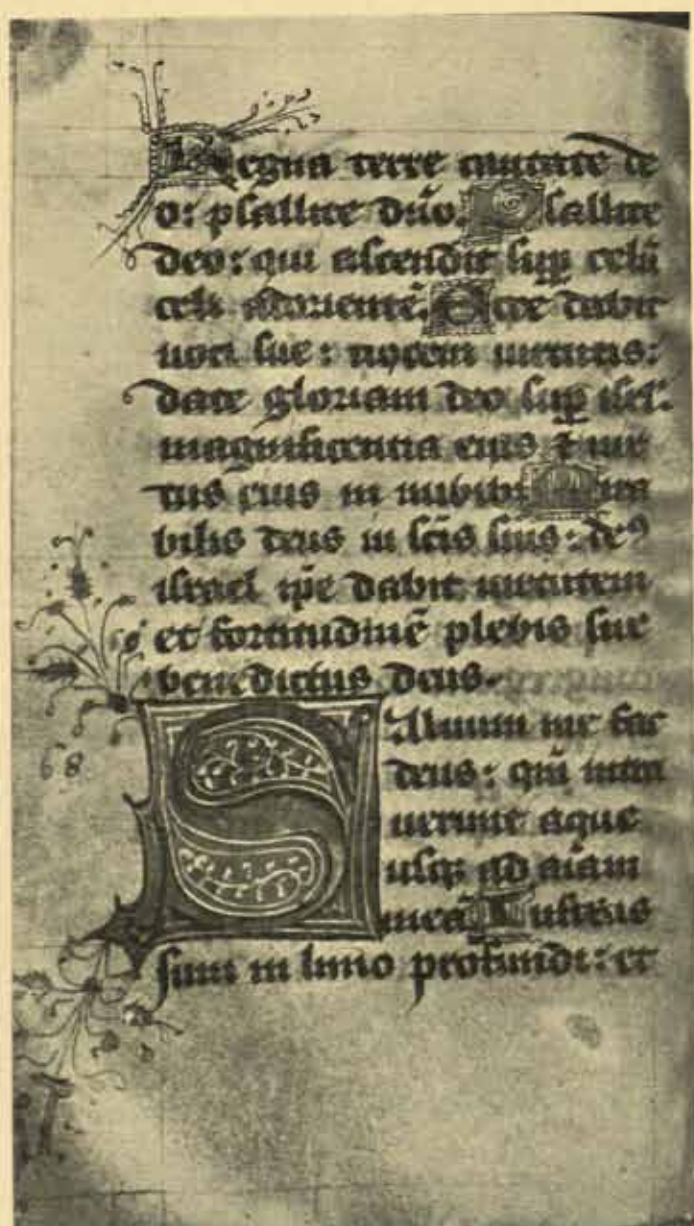 Regna terre cantate de
o: psallite dño. Psallite
deo: qui ascendit sup celū
celi ad orientē. Ecce dabit
uoci sue: uocem uirtutis:
date gloriam deo sup isrl'.
magnificentia eius ⁊ uir
tus eius in nubib: Mira
bilis deus in scīs suis: deꝰ
israel ip̄e dabit uirtutem
et fortitudinē plebis sue
benedictus deus.
Saluum me fac
deus: qm̄ intra
uerunt aque
usqꝫ ad aīam
meā Infixus
sum in limo profundi: et
68